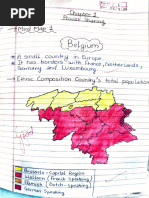 Chapter 1
Power Sharing
Mind Map 1
Belgium
A small country in Europe.
It has borders with France, Netherlands,
Germany and Luxembourg.
Ethnic Composition Country's total population
Brussels-Capital Region
Walloon (French Speaking)
Flemish (Dutch-speaking)
German Speaking